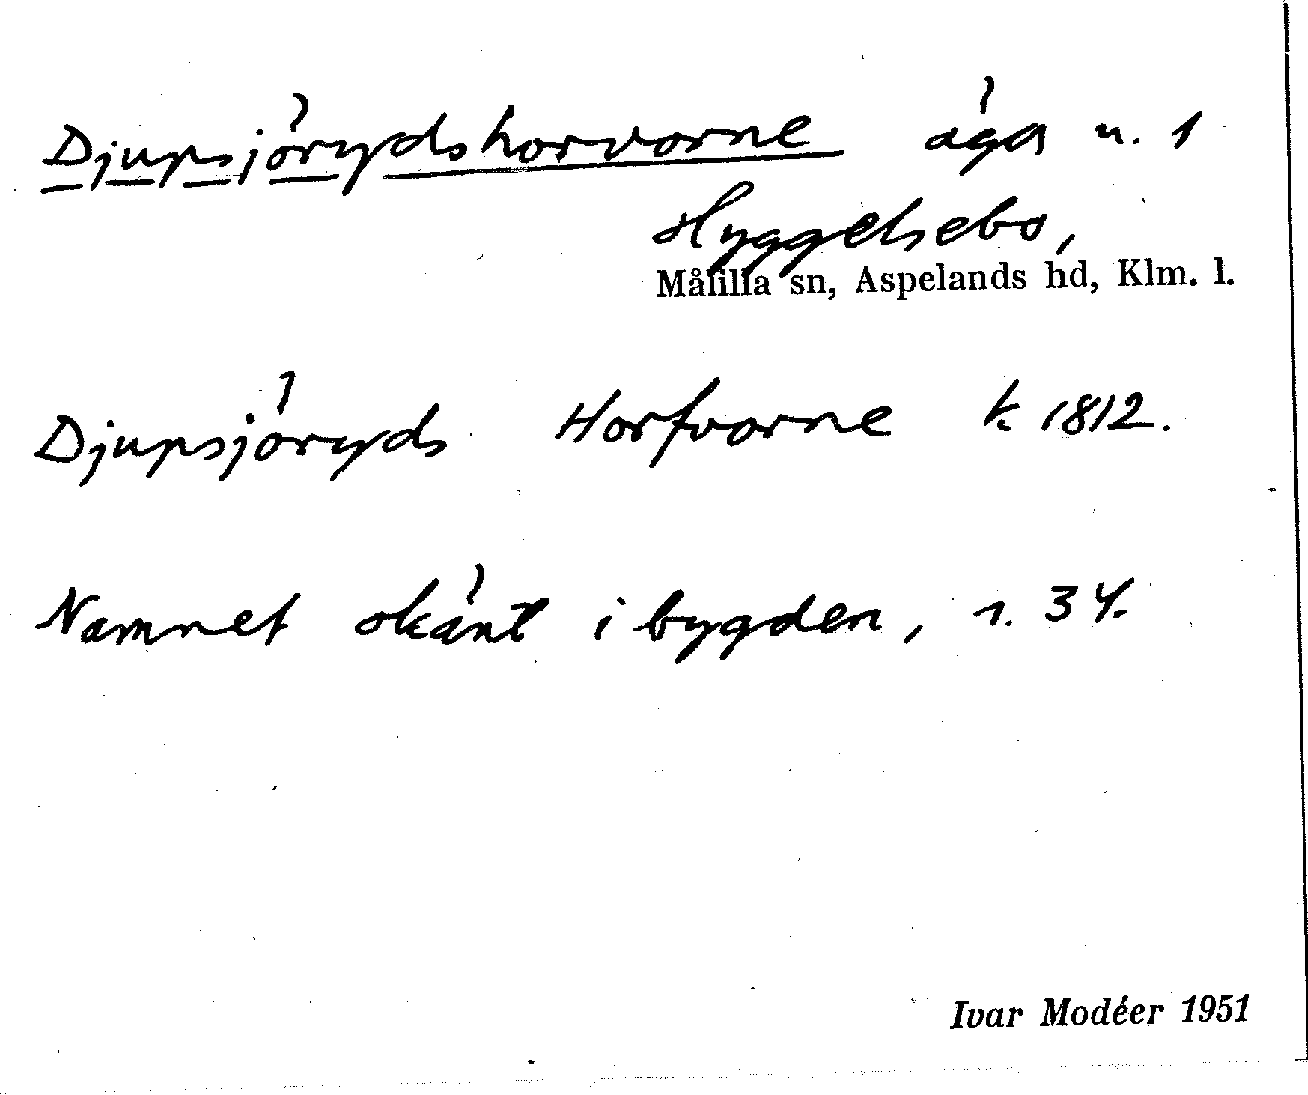 Djupsjörydshorvorne äga u. 1
Hyggelsebo,
Målilla sn, Aspelands hd, Klm. l.
Djupsjöryds Horfvorne k. 1812.
Namnet okänt i bygden, 34.
Ivar Modéer 1951